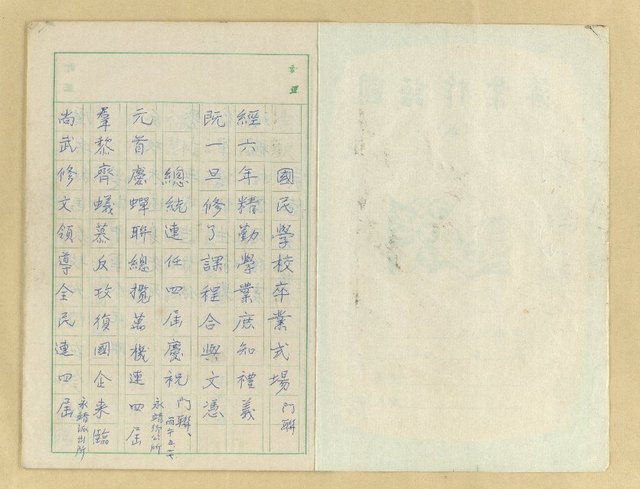 國民學校卒業式場 門聯
經六年精勤學業庶知禮義
既一旦修了課程合與文憑
總統連任四屆慶祝 門聯、丙午五 
元首慶蟬聯總攬萬機連四屆 永靖鄉公所
羣黎齊蟻慕反攻復國企来臨
尚武修文領導全民連四屆 永靖派出所